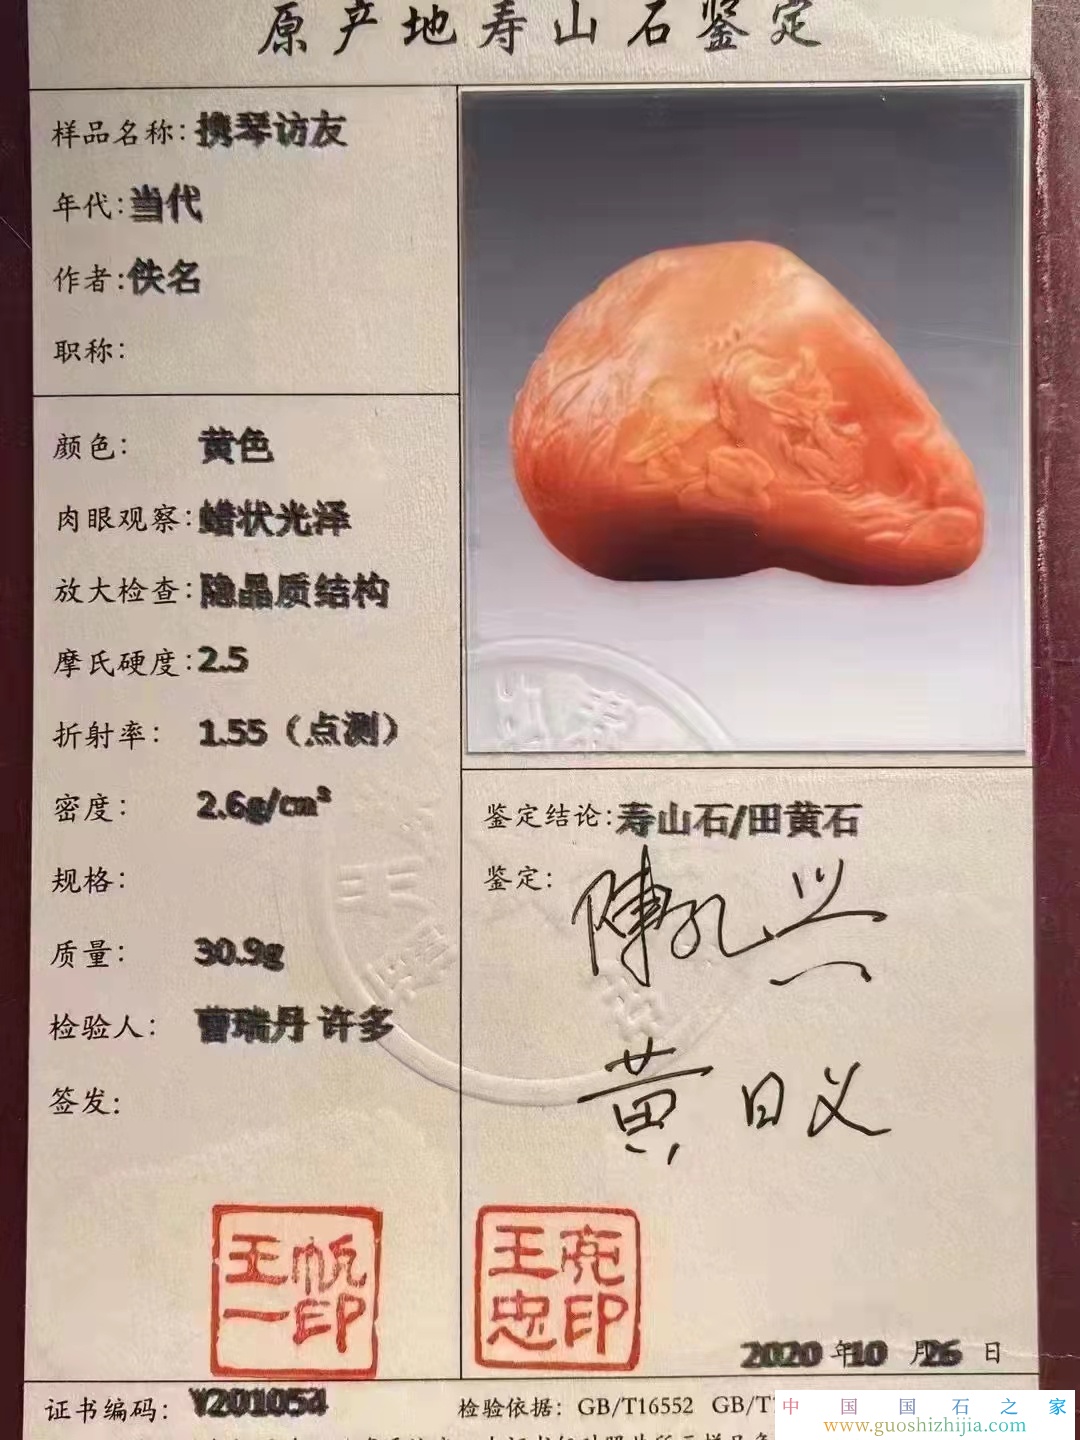 原产地寿山石鉴定
样品名称：携琴访友
年代：当代
作者：佚名
职称：
颜色：黄色
肉眼观察：蜡状光泽
放大检查：隐晶质结构
摩氏硬度：2.5
折射率：1.55（点测）
密度：2.6g/cm³
规格：
质量：30.9g
检验人：曹瑞丹 许多
签发：
王帆
一印
鉴定结论：寿山石/田黄石
鉴定：
陳孔兴
黄日义
王亮
忠印
2020年10月26日
证书编码：Y201054
检验依据：GB/T16552 GB/T
中国国石之家
www.guoshizhijia.com